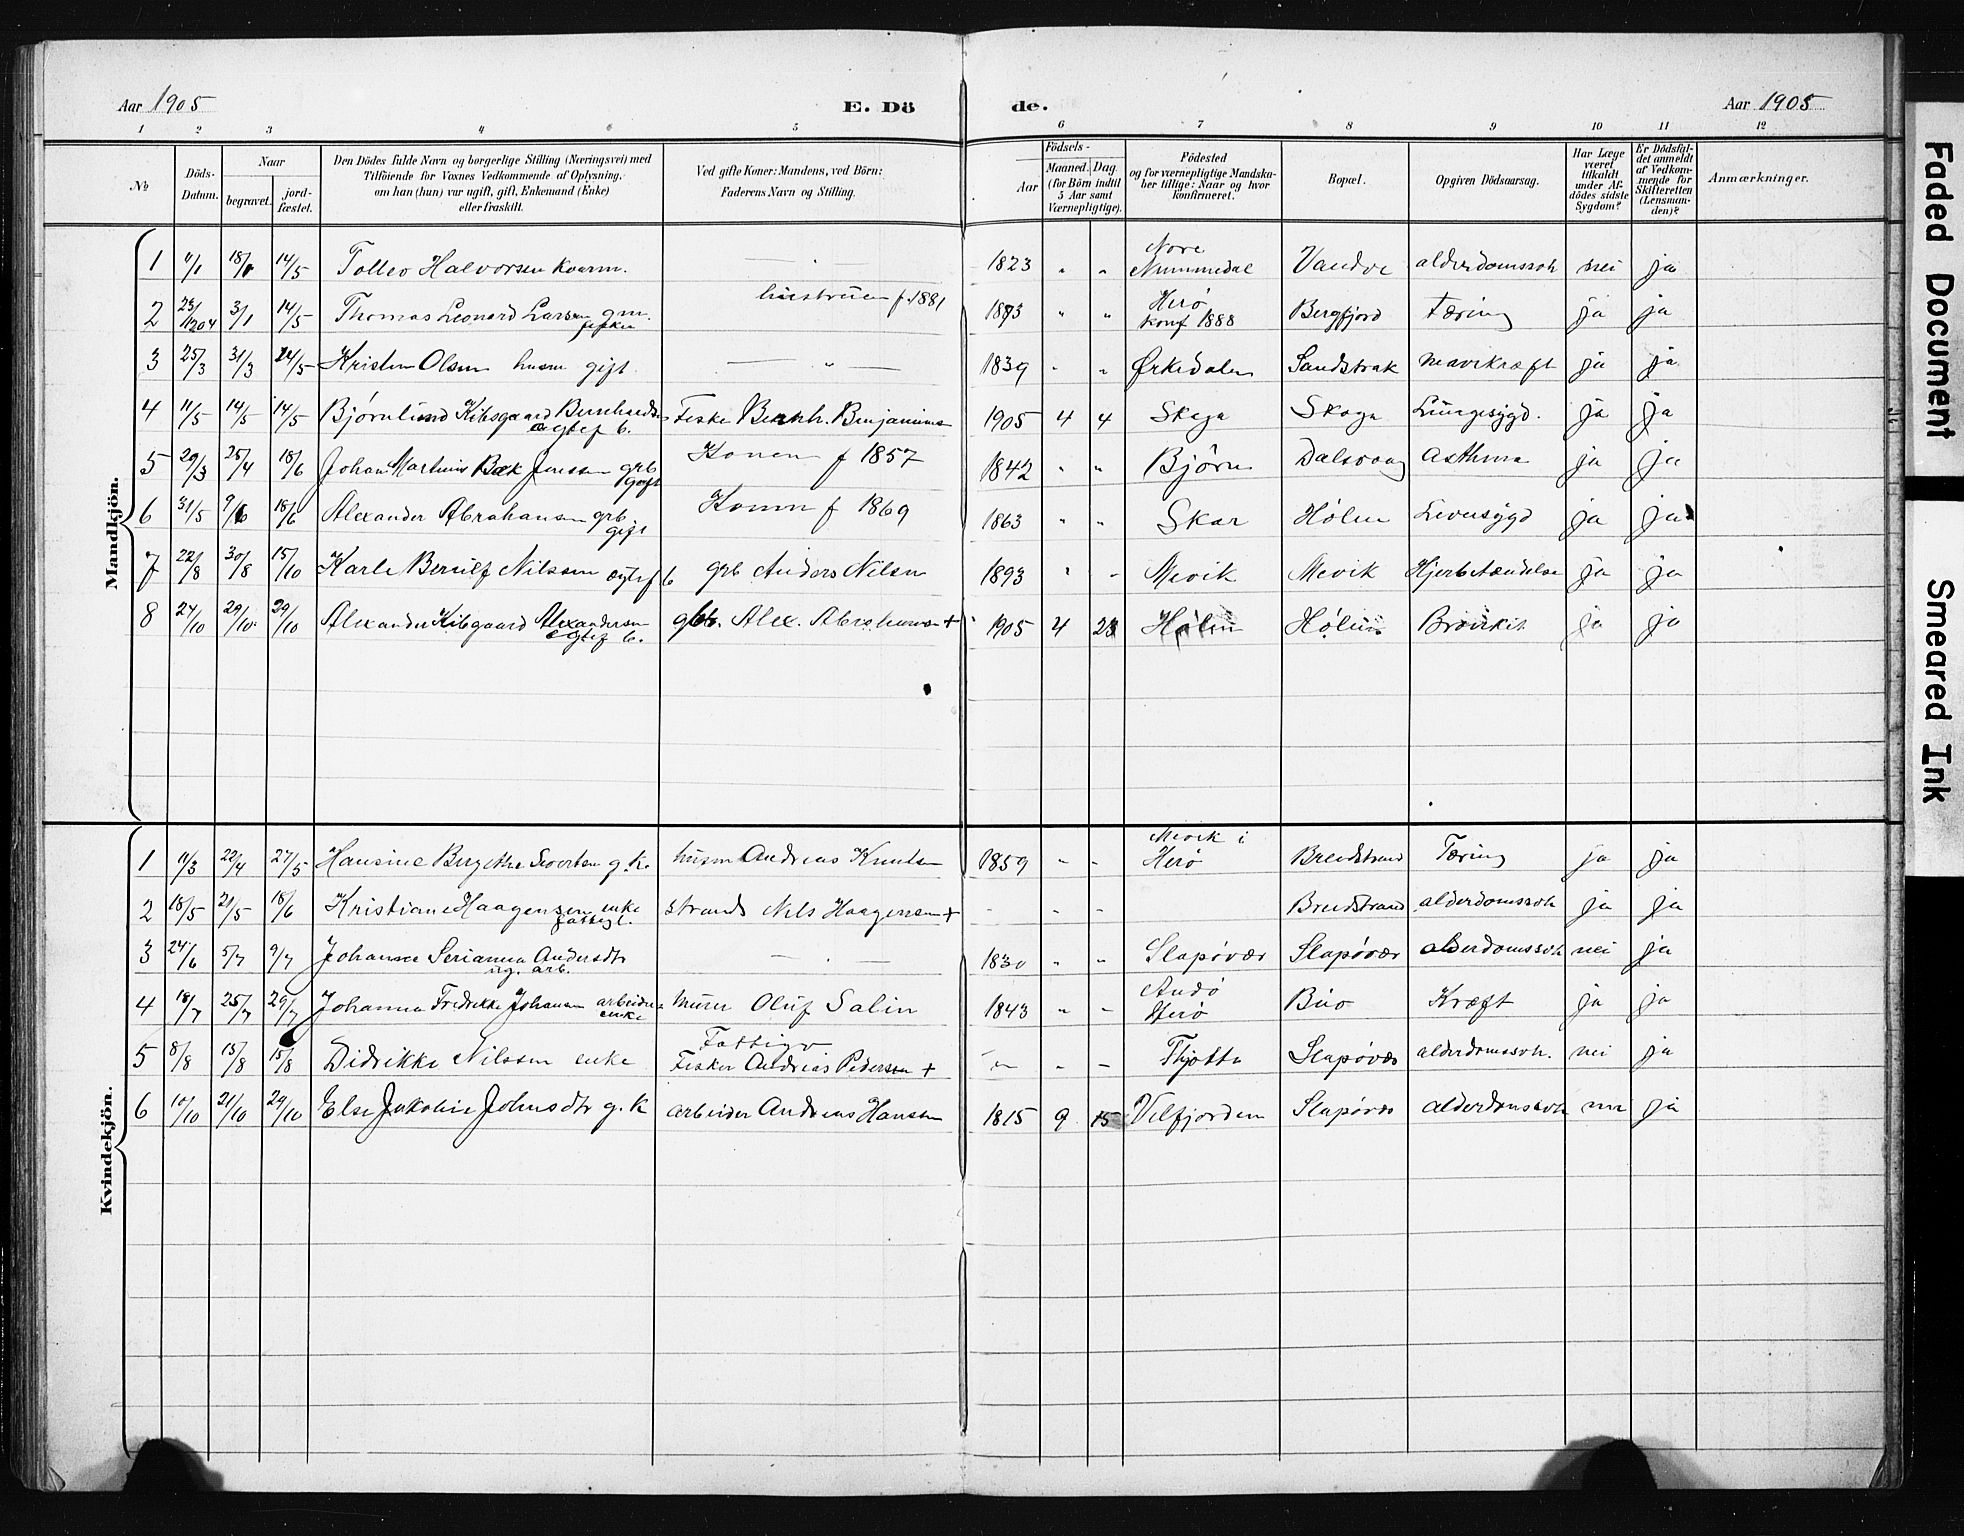 Aar 1905 E. Dö de. Aar 1905
1 2 3 4 5 6 7 8 9 10 11 12
No
Döds-Datum.
Naar
begravet.
jord-fæstet.
Den Dödes fulde Navn og borgerlige Stilling (Næringsvei) med
Tilföiende for Voxnes Vedkommende af Oplysning,
om han (hun) var ugift, gift, Enkemand (Enke)
eller fraskilt.
Ved gifte Koner: Mandens, ved Börn:
Faderens Navn og Stilling.
Födsels-
Aar
Maaned. Dag.
(for Börn indtil
5 Aar samt
Værnepligtige).
Födested
og for værnepligtige Mandska-
ber tillige: Naar og hvor
konfirmeret.
Bopæl.
Opgiven Dödsaarsag.
Har Læge
været
tilkaldt
under Af-
dödes sidste
Sygdom?
Er Dödsfal-
det anmeldt
af Vedkom-
mende for
Skifteretten
(Lensman-
den)?
Anmærkninger.
Mandkjön.
1 11/1 14/5 Tollev Halvorsen — " — 1823 " " Nore Nummedal alderdomssvh nei ja
2 3/1 14/5 Thomas Leonard Larsen gm. fisker hustruen f. 1881 " " Herö konf 1888 Bergfjord Tæring ja ja
3 25/3 31/3 24/5 Kristen Olsen husm gift — " — 1839 " " Ørkedalen Sandstrak mavekræft ja ja
4 11/5 14/5 14/5 Bjørnlund Kibsgaard Bernhardsen ægtef b. Fisker Bernh. Benjamins 1905 4 4 Skaga Skaga Lungesygd. ja ja
5 29/3 25/4 18/6 Johan Martinus Bæk Jenssen grb gift Konen f 1857 1842 " " Bjørn Dalsvaag Asthma ja ja
6 31/5 9/6 18/6 Alexander Abrahamsen grb gift Konen f 1869 1863 " " Skar Hølen Leversygd ja ja
7 22/8 30/8 15/10 Karle Nilssen ægtef b grb Anders Nilsen 1893 " " Mevik Mevik ja ja
8 24/10 29/10 29/10 Alexander Kibgaard Alexandersen ægtef b. grb. Alex. Abrahamsen + 1905 4 23 Hølen Hølen ja ja
Kvindekjön.
1 11/3 22/4 27/5 Hansine Sivertsen g. K. husm Andreas Knutsen 1859 " " Mevik i Herö Breidstrand Tæring ja ja
2 18/5 21/5 18/6 Kristiane Haagensen enke fattigl. strands Nils Haagensen + " " " Breidstrand alderdomssvh ja ja
3 24/6 5/7 9/7 Johanna Serianna Andersdtr ug. arb. — " — 1830 " " Slapøvær Slapøvær alderdomssvh nei ja
4 18/7 25/7 29/7 Johanna Fredrikke Johansen arbeider enke murer Oluf Salin 1843 " " Andø Herö Buo Kræft ja ja
5 8/8 13/8 15/8 Didrikke Nilssen enke Fattigv Fisker Andreas Pedersen + " " " Thjøtta Slapøvær alderdomssvh. nei ja
6 21/10 29/10 Else Jakobie Johnsdtr g. K arbeider Andreas Hansen 1815 9 15 Velfjorden Slapøvær alderdomssvh nei ja
Faded Document
Smeared Ink